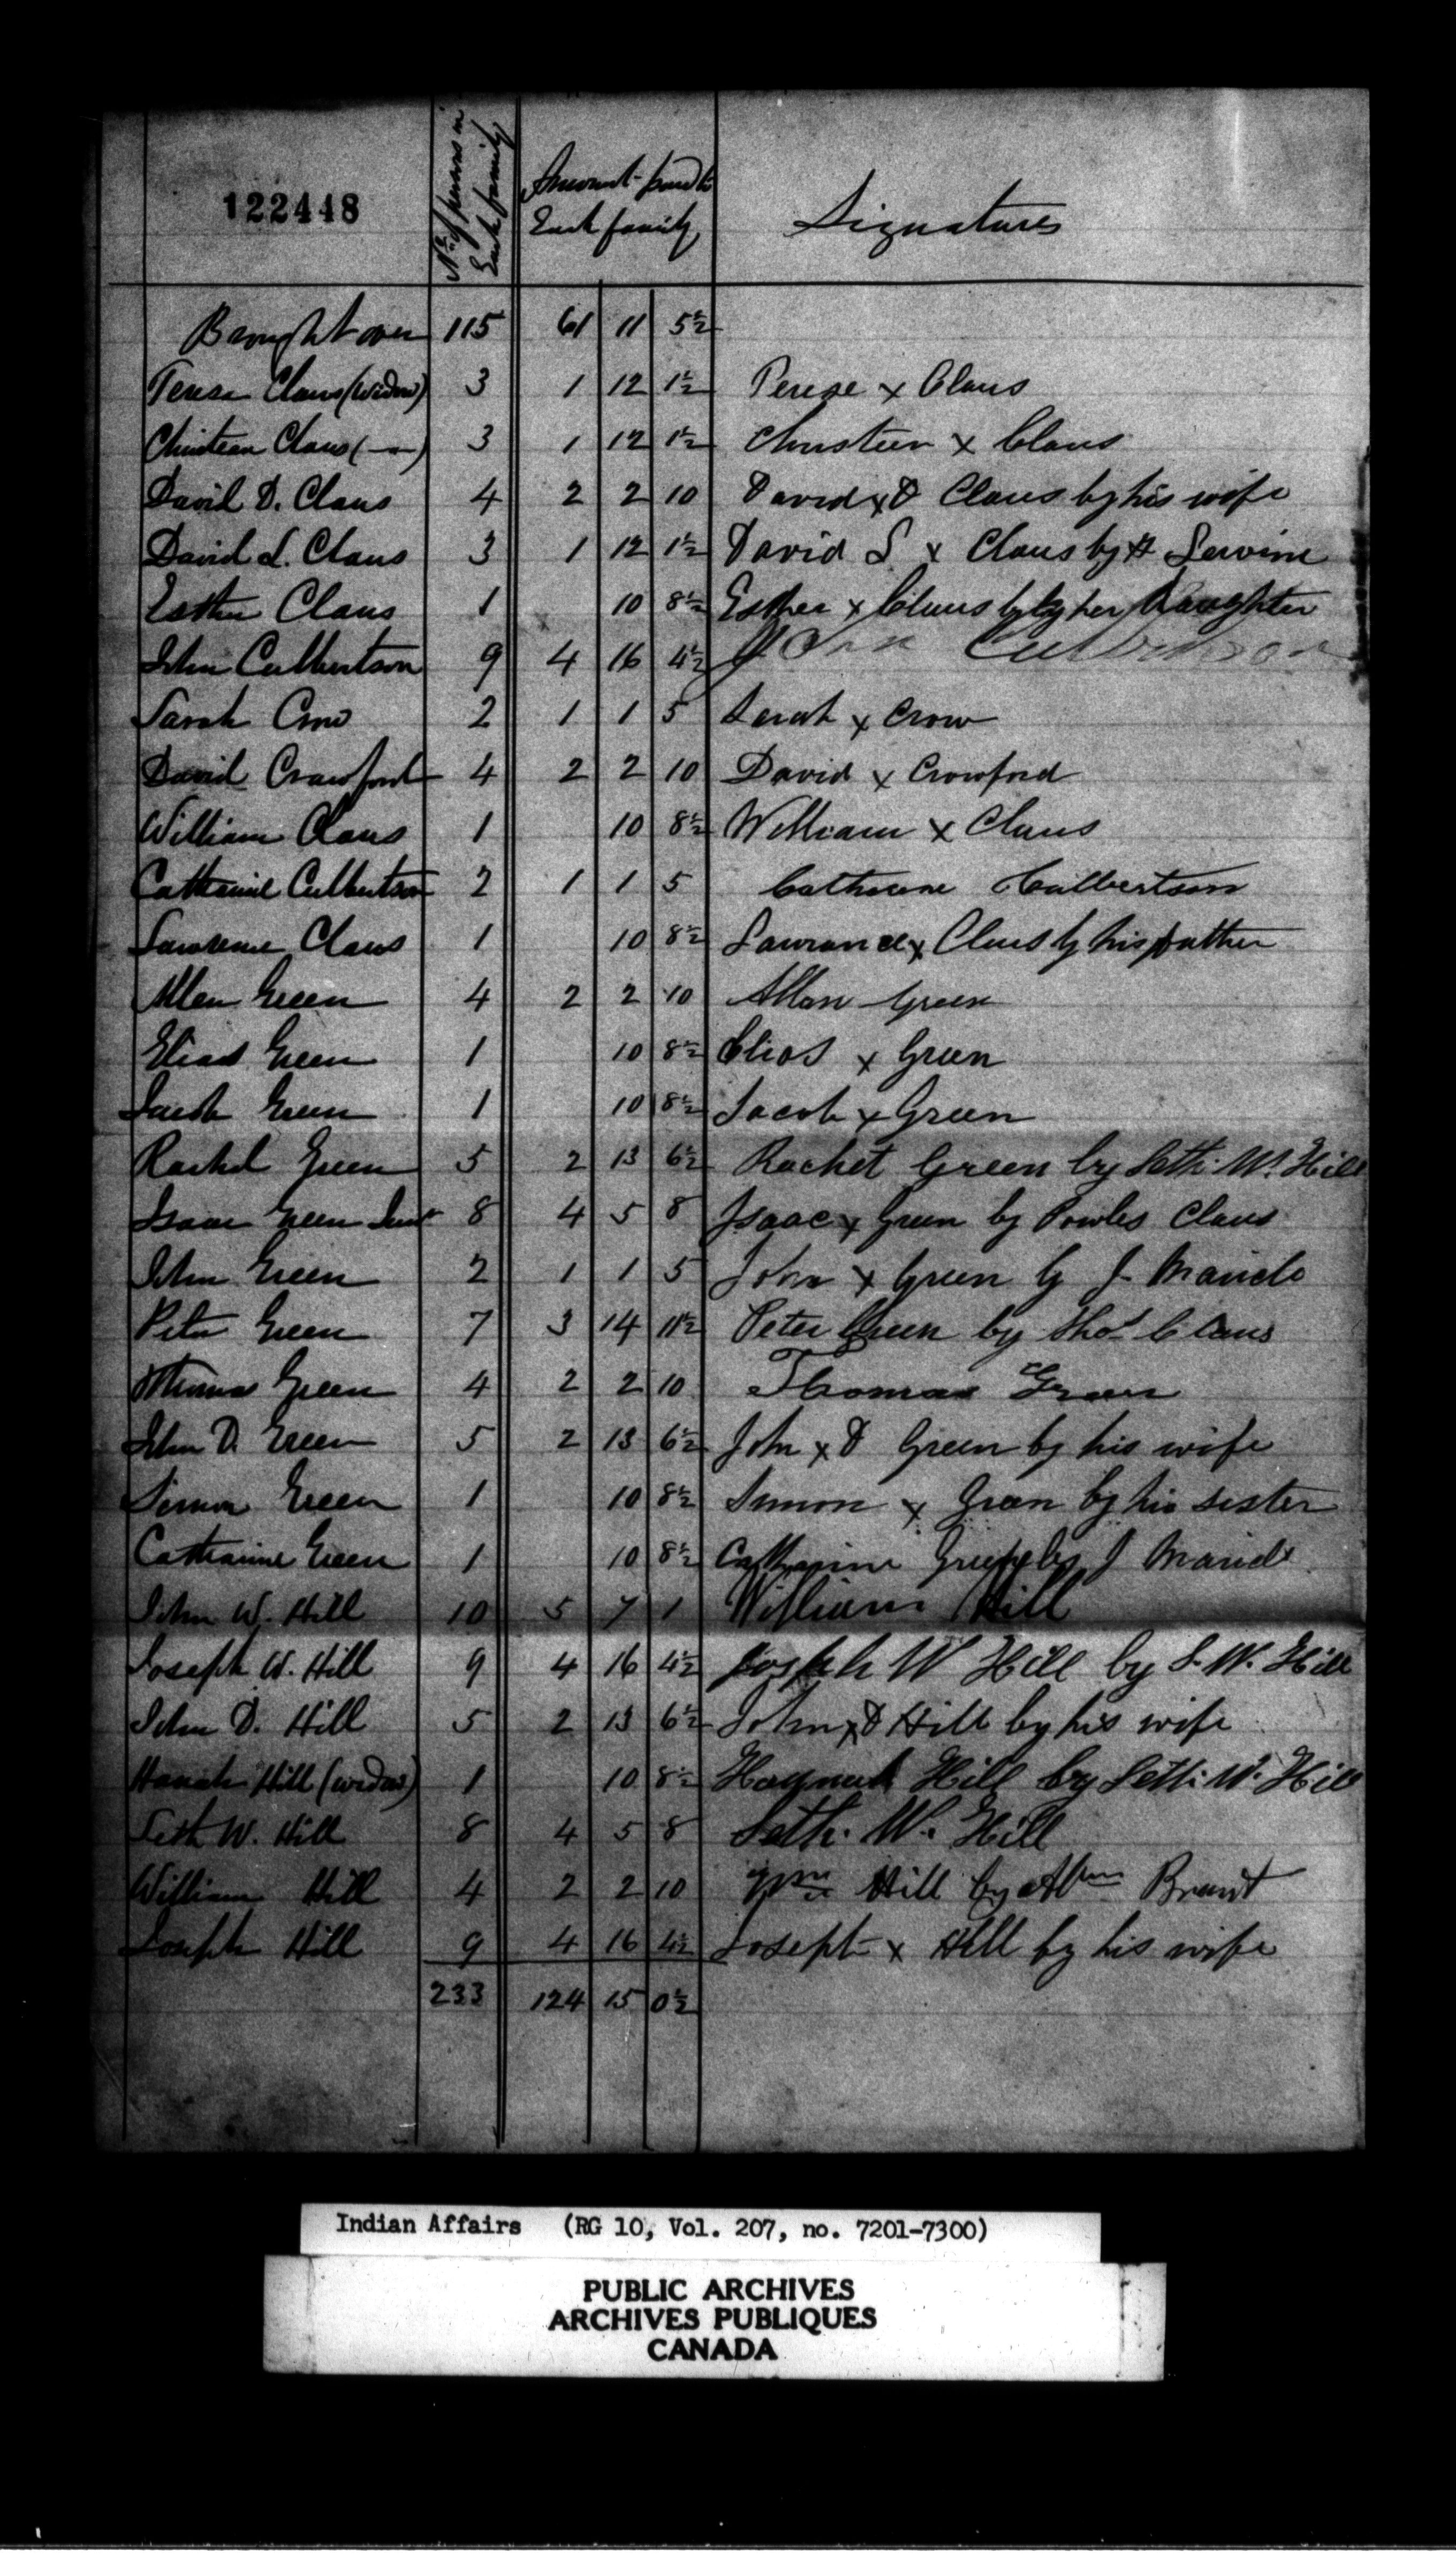 122448
No. of persons in Each family
Amount paid to Each family
Signatures
Brought over 115 61 11 5½
Teresa Claus (Widow) 3 1 12 1½ Perese x Claus
Christeen Claus (—"—) 3 1 12 1½ Christeen x Claus
David D. Claus 4 2 2 10 David x D Claus by his wife
David L. Claus 3 1 12 1½ David L x Claus by Lewine
Esther Claus 1 10 8½ Esther x Claus by her daughter
John Culbertson 9 4 16 4½ John Culbertson
Sarah Crow 2 1 1 5 Sarah x Crow
David Crawford 4 2 2 10 David x Crowford
William Claus 1 10 8½ William x Claus
Catharine Culbertson 2 1 1 5 Catherine Culbertson
Lawrence Claus 1 10 8½ Lawrance x Claus by his father
Allen Green 4 2 2 10 Allan Green
Elias Green 1 10 8½ Elias x Green
Jacob Green 1 10 8½ Jacob x Green
Rachel Green 5 2 13 6½ Rachel Green by Seth. W. Hill
Isaac Green Senr 8 4 5 8 Isaac x Green by Powles Claus
John Green 2 1 1 5 John x Green by J. Maricle
Peter Green 7 3 14 11½ Peter Green by Thos Claus
Thomas Green 4 2 2 10 Thomas Green
John D. Green 5 2 13 6½ John x D Green by his wife
Simon Green 1 10 8½ Simon x Green by his sister
Catharine Green 1 10 8½ Catharine Green by J Maricle
John W. Hill 10 5 7 1 William Hill
Joseph W. Hill 9 4 16 4½ Joseph W Hill by S. W. Hill
John D. Hill 5 2 13 6½ John x D Hill by his wife
Hanah Hill (widow) 1 10 8½ Haynnah Hill by Seth. W. Hill
Seth W. Hill 8 4 5 8 Seth. W. Hill
William Hill 4 2 2 10 Wm Hill by Abm Brant
Joseph Hill 9 4 16 4½ Joseph x Hill by his wife
233 124 15 0½
Indian Affairs (RG 10, Vol. 207, no. 7201-7300)
PUBLIC ARCHIVES
ARCHIVES PUBLIQUES
CANADA